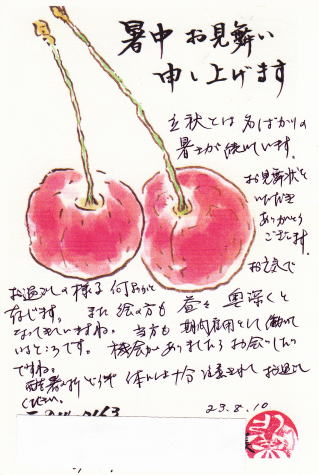 暑中お見舞い
申し上げます
立秋とは名ばかりの
暑さが続いています。
お見舞状を
いただき
ありがとう
ございます。
お元気で
お過しの様子何よりと
存じます。また絵の方も益々奥深く
なってきていますね。当方も期間雇用として働いて
いるところです。機会がありましたらお会いしたい
ですね。
酷暑の折どうぞ体には十分注意されてお過し
ください。
23.8.10